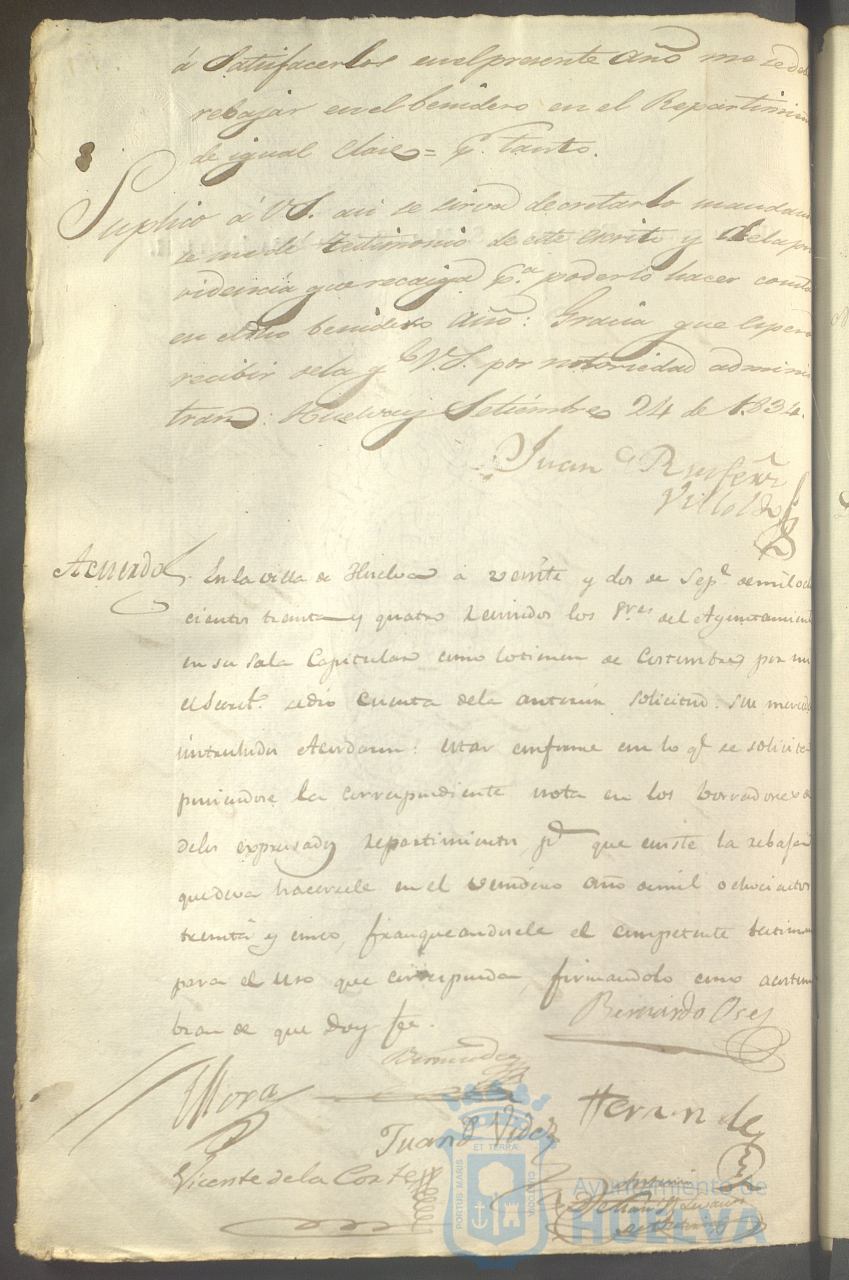 á Satisfacerlos en el presente año me se debe
rebajar en el benidero en el Repartimien
de igual Clase = Pr. tanto.
Suplico á VS. asi se sirva decretarlo mandan
se me dé testimonio de este escrito y de la pro
videncia que recaiga pa. poderlo hacer consta
en el dho benidero año: Gracia que espero
recibir de la q VS. por notoriedad adminis
tran: Huelva y Setiembre 24 de 1834.
Juan
Villoldo
Acuerdo. En la villa de Huelva á veinte y dos de Sepe. de mil ocho
cientos treinta y quatro reunidos los Sres. del Ayuntamient
en su Sala Capitular como lo tienen de Costumbre por mi
el Secreto. se dió cuenta de la anterior solicitud. Sus mercedes
intruhidos Acordaron: estar conforme con lo qe. se solicita
poniendose la correspondiente nota en los borradores
delos expresados repartimientos pa. que conste la rebaja
que deva hacersele en el venidero año de mil ochocientos
treinta y cinco, franqueandosele el competente testimo
para el uso que corresponda, firmandolo como acostum
bran de que doy fee.
Bernardo Oses
Bermudez
Mora
Hernandez
Juan Videz
Vicente de la Corte
PORTUS MARIS ET TERRAE CUSTODIA
Ayuntamiento de
HUELVA